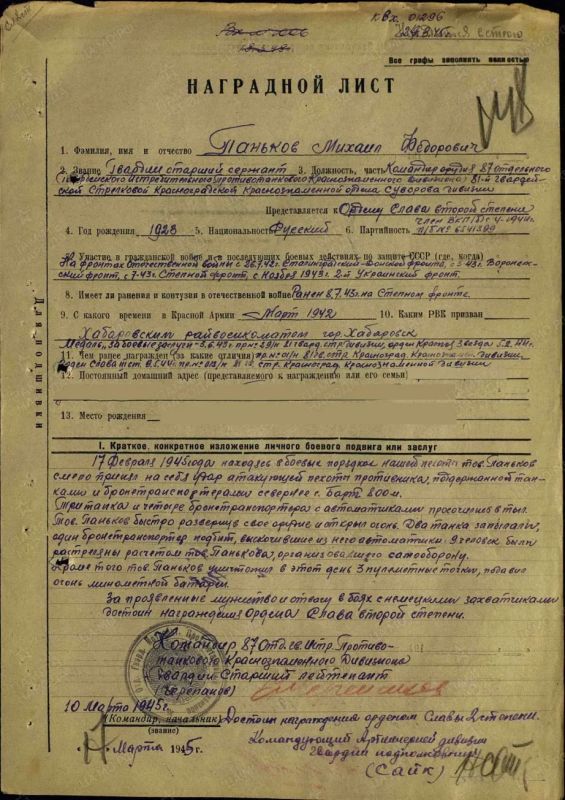 квх. 01296
Все графы заполнять полностью
НАГРАДНОЙ ЛИСТ
1. Фамилия, имя и отчество Паньков Михаил Федорович
2. Звание Гвардии старший сержант 3. Должность, часть Командир орудия 87 отдельного
Гвардейского Истребительного противотанкового Краснознаменного Дивизиона 81-й Гвардей-
ской Стрелковой Красноградской Краснознаменной ордена Суворова Дивизии
Представляется к Ордену Слава второй степени
4. Год рождения 1923 5. Национальность Русский 6. Партийность член ВКП(б) с 4-1944г.
7. Участие в гражданской войне и последующих боевых действиях по защите СССР (где, когда)
На фронтах Отечественной войны с 28.7.42г. Сталинградский-Донской фронт, с 3-43г. Воронеж-
ский фронт, с 7-43г. Степной фронт, с Ноября 1943г. 2-й Украинский фронт.
8. Имеет ли ранения и контузии в отечественной войне Ранен 8.7.43г. на Степном фронте.
9. С какого времени в Красной Армии с Март 1942 10. Каким РВК призван
Хабаровским райвоенкоматом гор. Хабаровск
11. Чем ранее награжден (за какие отличия)
12. Постоянный домашний адрес (представляемого к награждению или его семьи)
13. Место рождения
Для подшивки
I. Краткое, конкретное изложение личного боевого подвига или заслуг
17 Февраля 1945 года находясь в боевых порядках нашей пехоты тов. Паньков
смело принял на себя удар атакующей пехоты противника, поддержанной тан-
ками и бронетранспортерами севернее с. Барт 800м.
Три танка и четыре бронетранспортера с автоматчиками просочились в тыл.
Тов. Паньков быстро развернув свое орудие и открыл огонь. Два танка запылали,
один бронетранспортер подбит, выскочившие из него автоматчики 9 человек были
растреляны расчетом тов. Панькова, организовавшего самооборону.
Кроме того тов. Паньков уничтожил в этот день 3 пулеметные точки, подавил
огонь минометной батареи.
За проявленные мужество и отвагу в боях с немецкими захватчиками
достоин награждения Ордена Слава второй степени.
Командир 87 Отд. гв. Истр. Противо-
танкового Краснознаменного Дивизиона
Гвардии Старший лейтенант
(Черепанов)
10 Марта 1945г.
(Командир, начальник) Достоин награждения орденом Славы 2 степени.
(звание)
Командующий Артиллерией дивизии
Марта 1945г. гвардии подполковник
(Сайк)